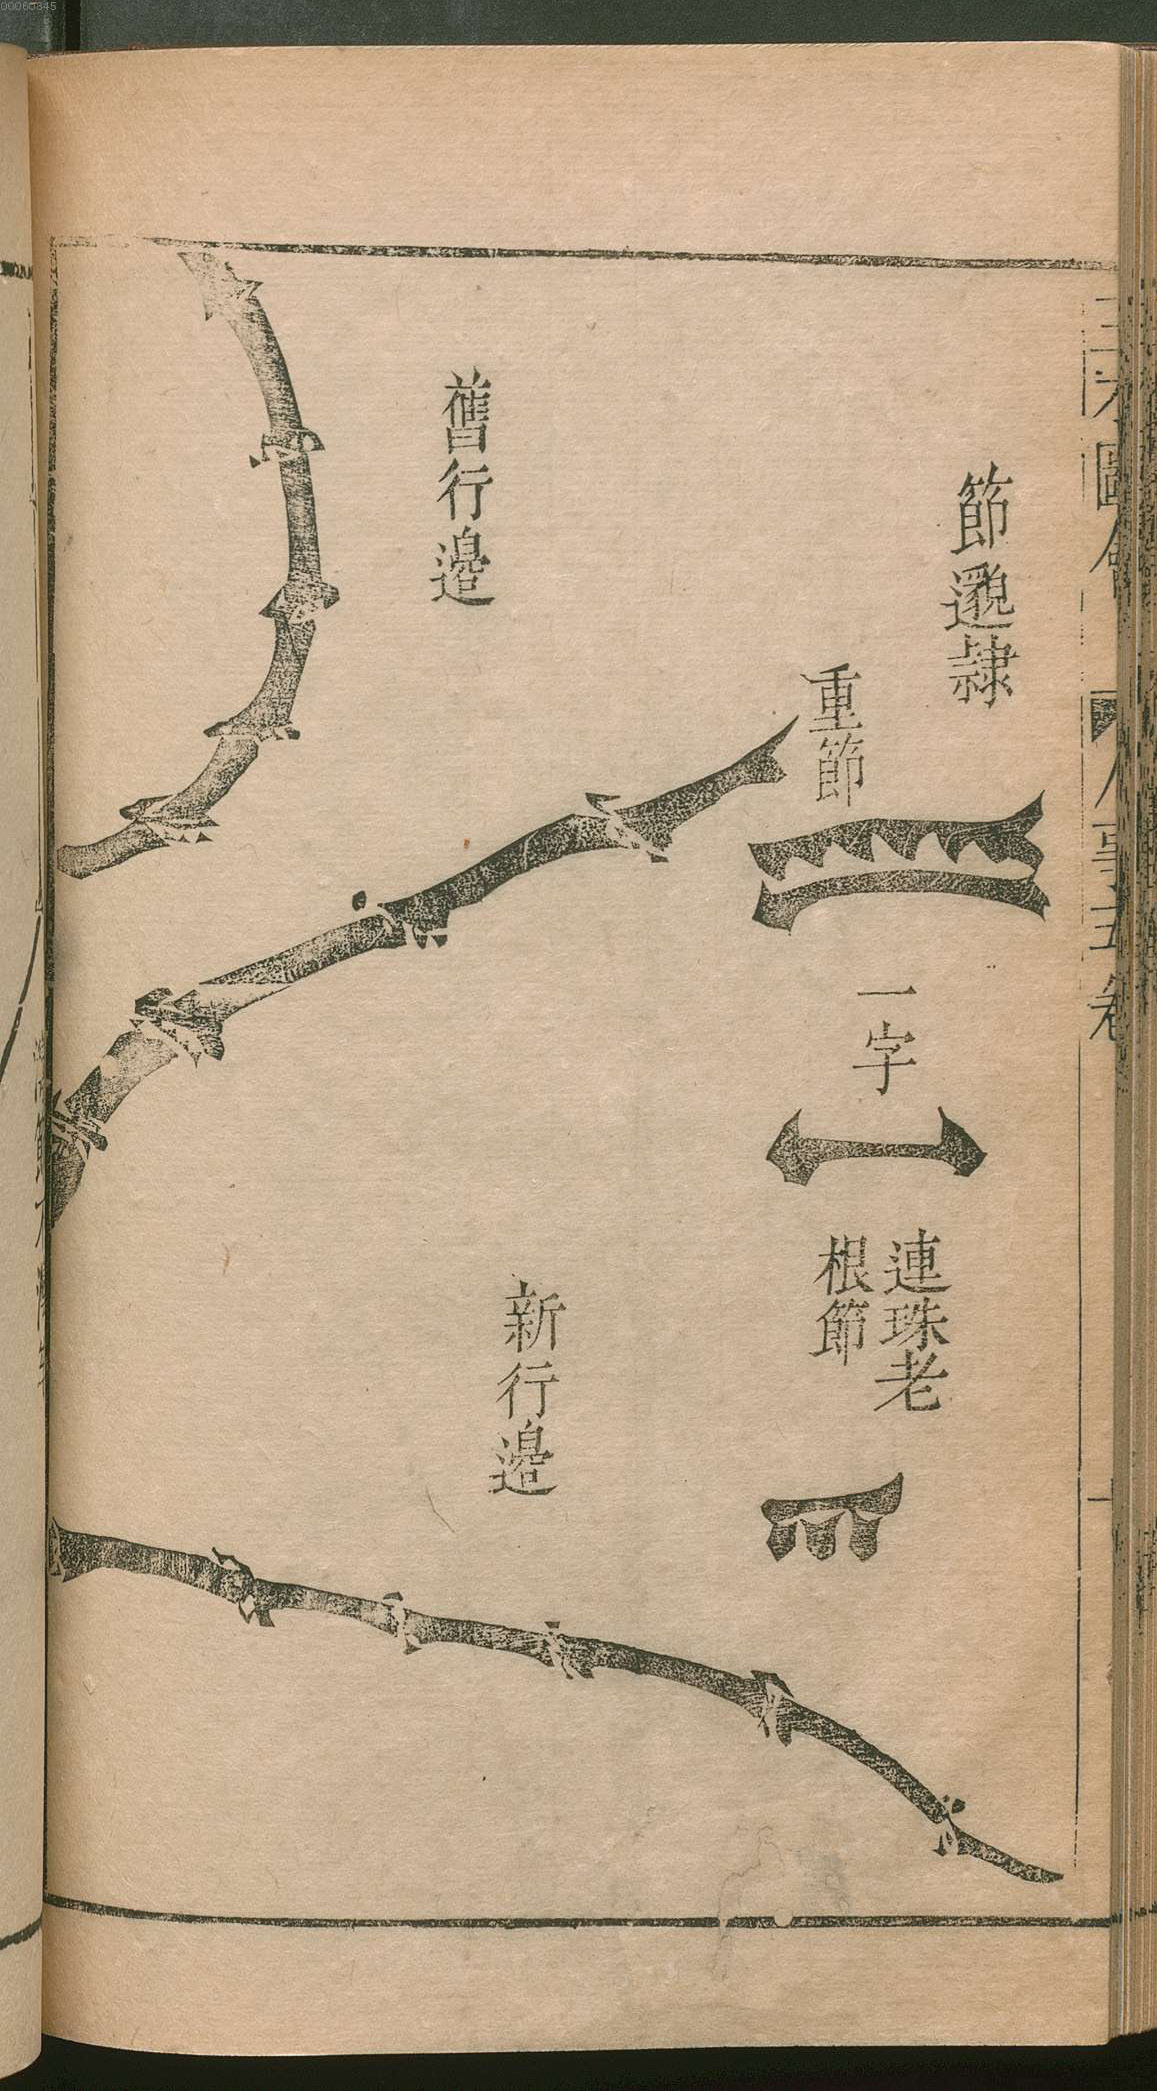 節邈隷
重節
一字
連珠老
根節
舊行邊
新行邊
00060845